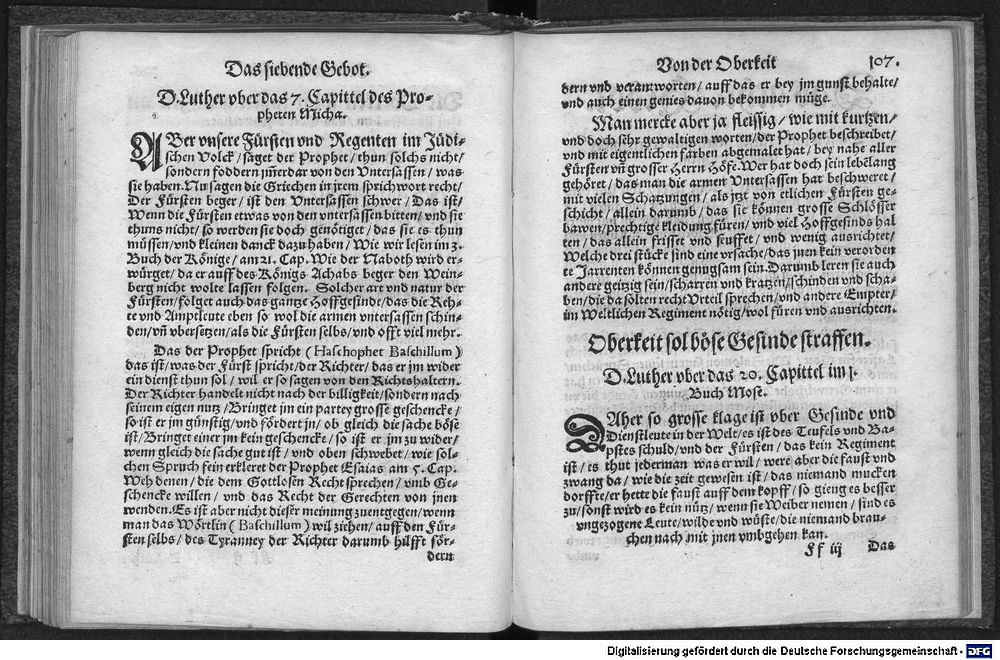 Das siebende Gebot.
D. Luther vber das 7. Capittel des Pro-
pheten Micha.
ABer vnsere Fürsten vnd Regenten im Jüdi-
schen Volck / saget der Prophet / thun solchs nicht /
sondern foddern jm̃erdar von den Vntersassen / was
sie haben. Nu sagen die Griechen in jrem sprichwort recht /
Der Fürsten beger / ist den Vntersassen schwer / Das ist /
Wenn die Fürsten etwas von den vntersassen bitten / vnd sie
thuns nicht / so werden sie doch genötiget / das sie es thun
müssen / vnd kleinen danck dazu haben / Wie wir lesen im 3.
Buch der Könige / am 21. Cap. Wie der Naboth wird er-
würget / da er auff des Königs Achabs beger den Wein-
berg nicht wolte lassen folgen. Solcher art vnd natur der
Fürsten / folget auch das gantze Hoffgesinde / das die Reh-
te vnd Amptleute eben so wol die armen vntersassen schin-
den / vñ vbersetzen / als die Fürsten selbs / vnd offt viel mehr.
Das der Prophet spricht ( Haschophet Baschillum )
das ist / was der Fürst spricht / der Richter / das er jm wider
ein dienst thun sol / wil er so sagen von den Richtshaltern.
Der Richter handelt nicht nach der billigkeit / sondern nach
seinem eigen nutz / Bringet jm ein partey grosse geschencke /
so ist er jm günstig / vnd fördert jn / ob gleich die sache böse
ist / Bringet einer jm kein geschencke / so ist er jm zu wider /
wenn gleich die sache gut ist / vnd oben schwebet / wie sol-
chen Spruch fein erkleret der Prophet Esaias am 5. Cap.
Weh denen / die dem Gottlosen Recht sprechen / vmb Ge-
schencke willen / vnd das Recht der Gerechten von jnen
wenden. Es ist aber nicht dieser meinung zuentgegen / wenn
man das Wörtlin ( Baschillum ) wil ziehen / auff den Für-
sten selbs / des Tyranney der Richter darumb hilfft för-
dern
Von der Oberkeit 107.
dern vnd verantworten / auff das er bey jm gunst behalte /
vnd auch einen genies dauon bekommen müge.
Man mercke aber ja fleissig / wie mit kurtzen /
vnd doch sehr gewaltigen worten / der Prophet beschreibet /
vnd mit eigentlichen farben abgemalet hat / bey nahe aller
Fürsten vñ grosser Herrn Höfe. Wer hat doch sein lebēlang
gehöret / das man die armen Vntersassen hat beschweret /
mit vielen Schatzungen / als jtzt von etlichen Fürsten ge-
schicht / allein darumb / das sie können grosse Schlösser
bawen / prechtige kleidung füren / vnd viel Hoffgesinds hal
ten / das allein frisset vnd seuffet / vnd wenig ausrichtet /
Welche drei stücke sind eine vrsache / das jnen kein verorden
te Jarrenten können genugsam sein. Darumb leren sie auch
andere geitzig sein / scharren vnd kratzen / schinden vnd scha-
ben / die da solten recht Vrteil sprechen / vnd andere Empter /
im Weltlichen Regiment nötig / wol füren vnd ausrichten.
Oberkeit sol böse Gesinde straffen.
D. Luther vber das 20. Capittel im j.
Buch Mose.
DAher so grosse klage ist vber Gesinde vnd
Dienstleute in der Welt / es ist des Teufels vnd Ba-
pstes schuld / vnd der Fürsten / das kein Regiment
ist / es thut jederman was er wil / were aber die faust vnd
zwang da / wie die zeit gewesen ist / das niemand mucken
dorffte / er hette die faust auff dem kopff / so gieng es besser
zu / sonst wird es kein nütz / wenn sie Weiber nemen / sind es
vngezogene Leute / wilde vnd wüste / die niemand brau-
chen nach mit jnen vmbgehen kan.
Ff iij Das
Digitalisierung gefördert durch die Deutsche Forschungsgemeinschaft - DFG